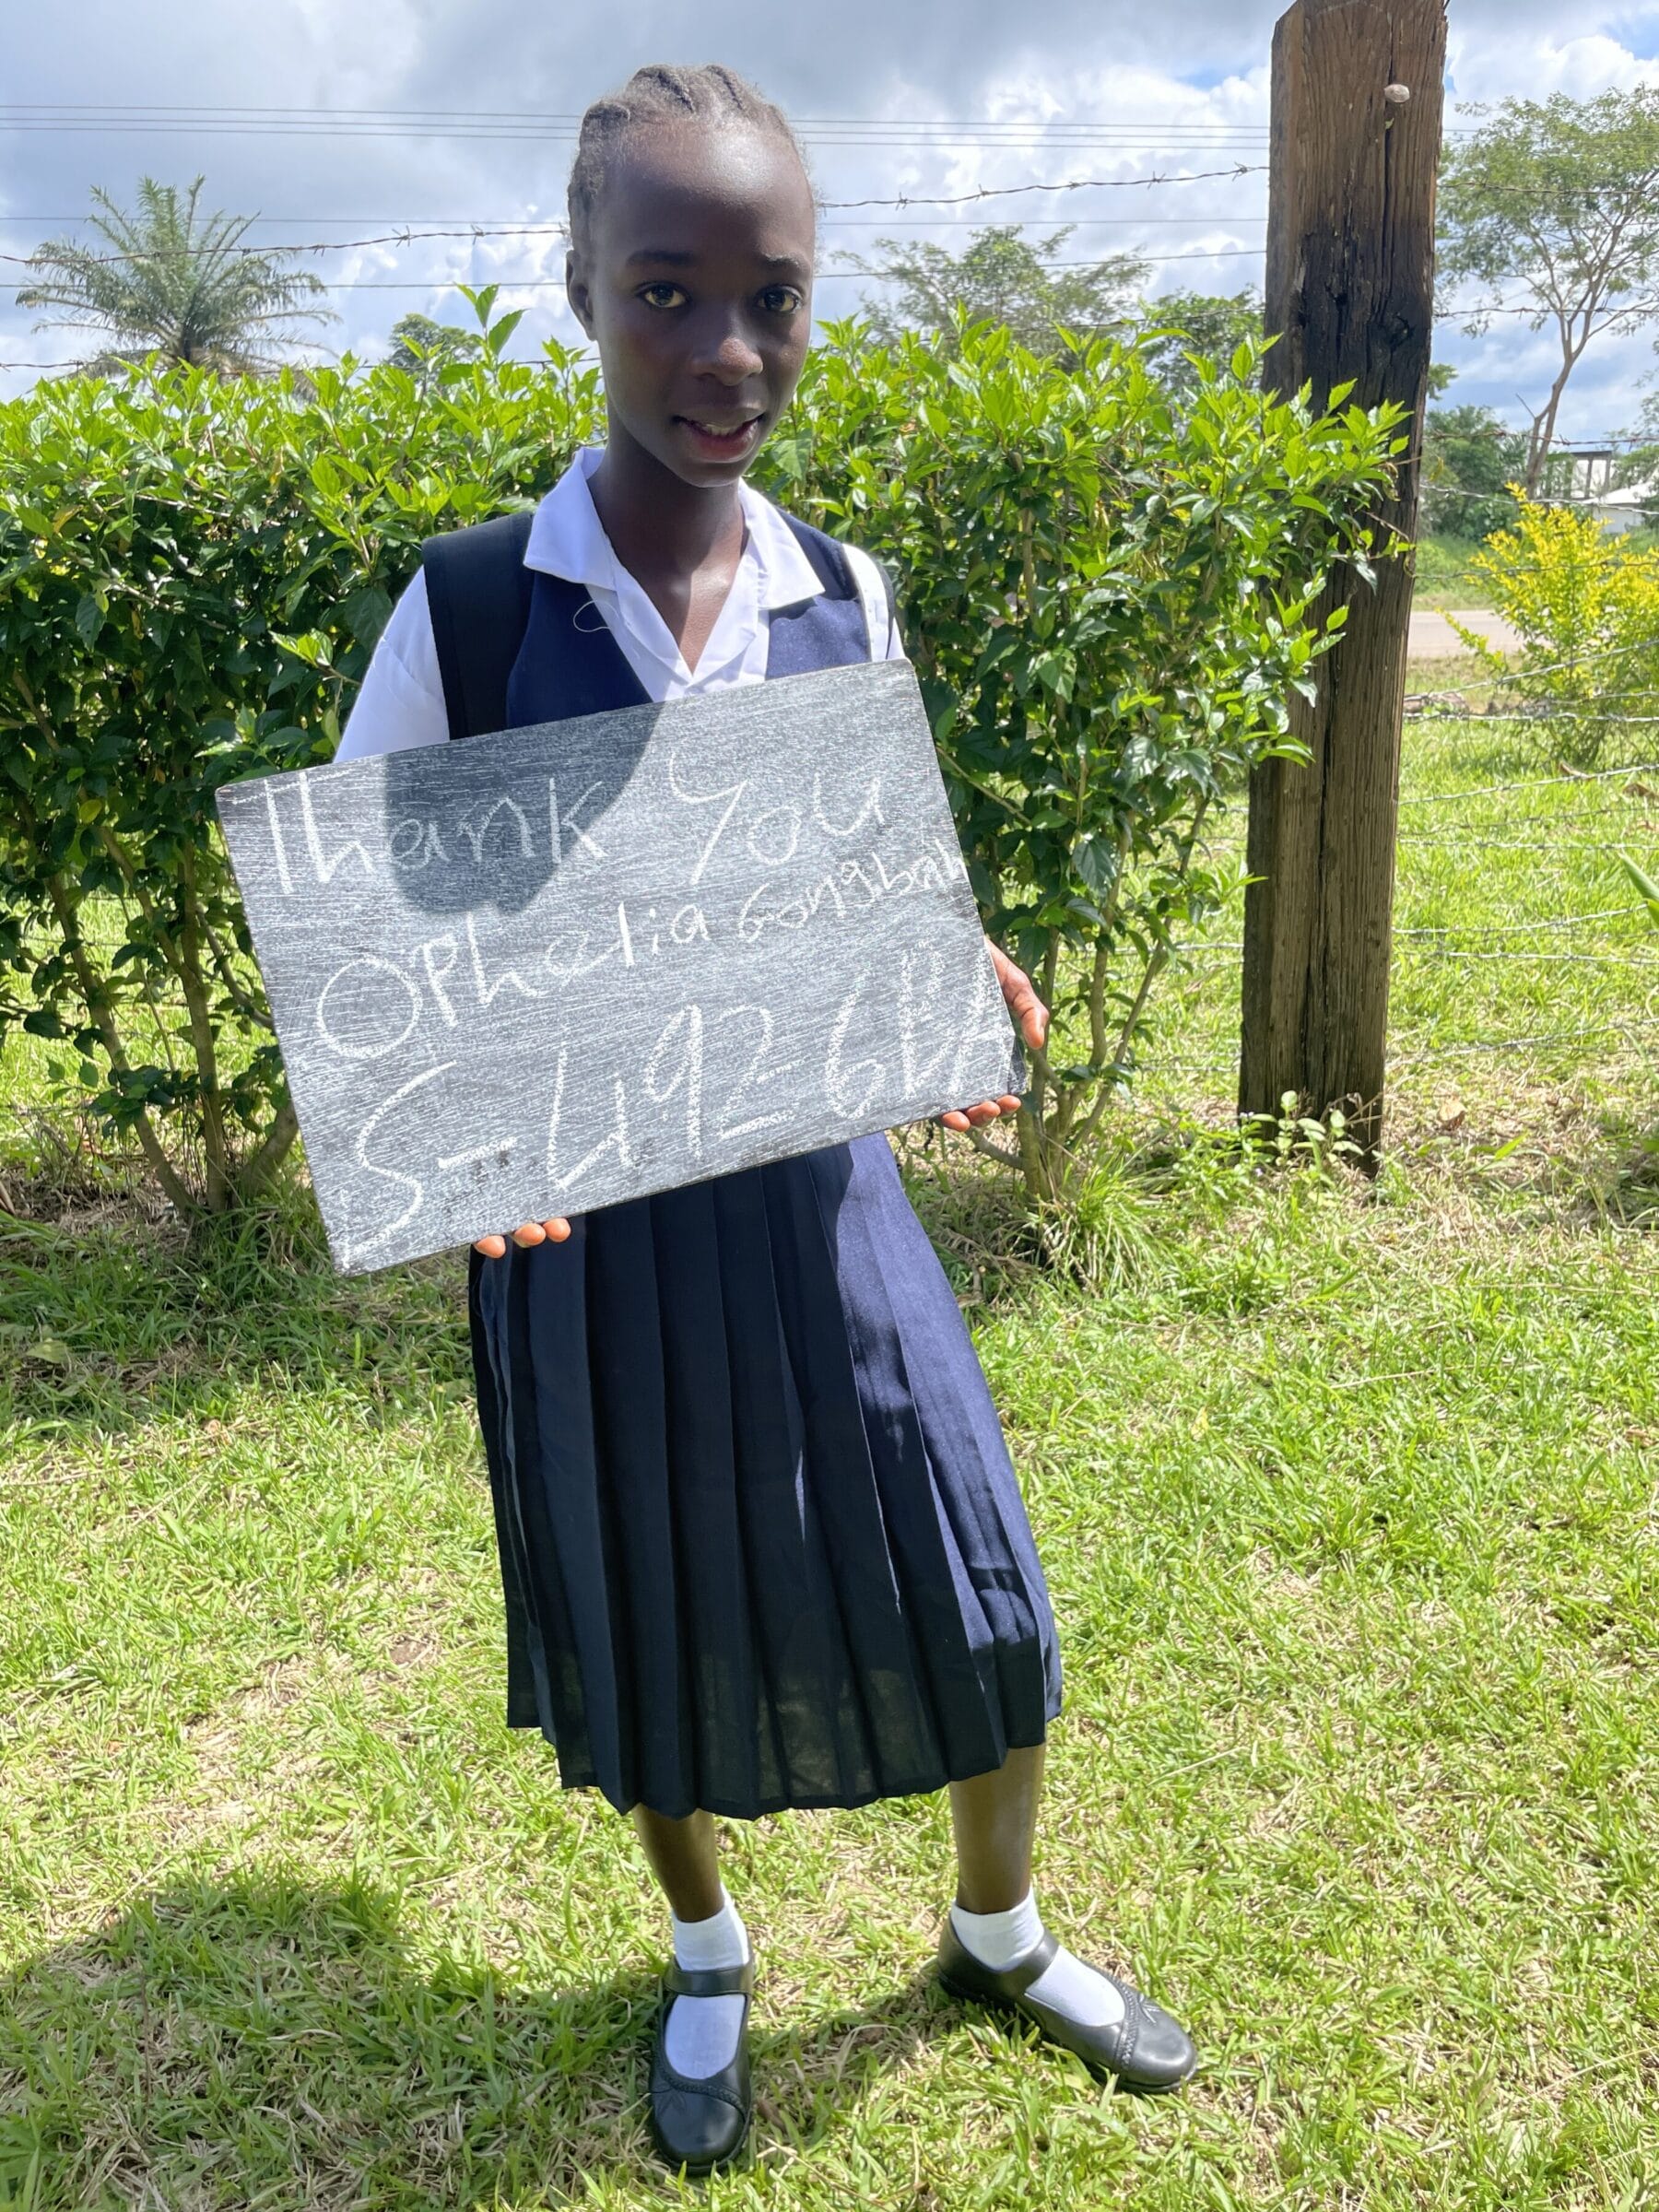 Thank You
Ophelia Gongbah
S-4926BA